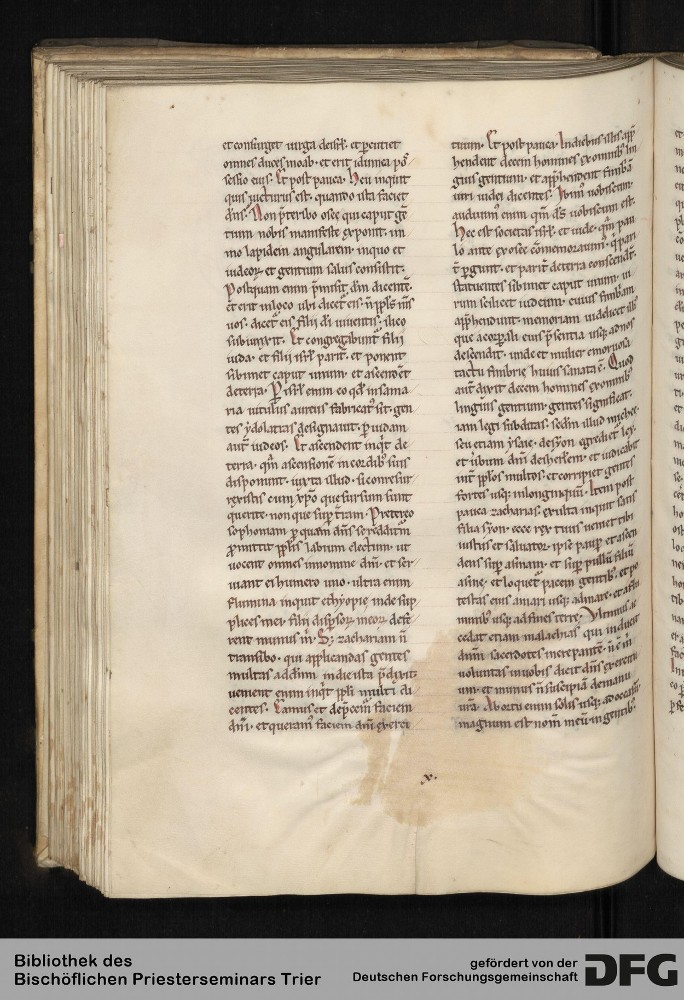 et consurget uirga de isrl̄. et ꝑcutiet
omnes duces moab. et erit idumea pos̄
sessio eius. Et post pauca. Heu inquit
quis uicturus est. quando ista faciet
dn̄s. Non p̄teribo osee qui caput gē
tium nobis manifeste exponit. im
mo lapidem angularem. in quo et
iudeoꝝ et gentium salus consistit.
Postquam enim p̄misit dn̄m dicentē.
et erit in loco ubi dicet̄ eis. n̄ ppl̄s m̄s
uos. dicet̄ eis filii di uiuentis. ilico
subiunxit. Et congregabunt̄ filii
iuda. et filii isrl̄ parit̄. et ponent
sibimet caput unum. et ascendēt
de terra. P isrl̄ enim eo qd̄ in sama
ria uitulus aureus fabricat̄ sit. gen
tes ydolatras designauit. ꝑ iudam
aut̄ iudeos. Et ascendent inqt̄ de
terra. qm̄ ascensionē in cordib; suis
disponunt. iuxta illud. si consur
rexistis cum xp̄o que sursum sunt
querite. non que sup̄ t̄ram. Pretereo
sophoniam ꝑ quam dn̄s se redditur̄
ꝓmittit ppl̄is labium electum. ut
uocent omnes in nomine dn̄i. et ser
uiant ei humero uno. ultra enim
flumina inquit ethyopie inde sup
plices mei. filii dispsoꝝ meoꝝ defe
rent munus m̄. S; zachariam n̄
transibo. qui applicandas gentes
multas ad dn̄m in die ista p̄dixit.
uenient enim inqt̄ ppl̄i multi di
centes. Eamus et dep̄cem̄ faciem
dn̄i. et queram̄ faciem dn̄i exerci
tuum. Et post pauca. In diebus illis app̄
hendent decem homines ex omnib; lin
guis gentium. et app̄hendent fimbriā
uiri iudei dicentes. Ibim̄ uobiscum.
audiuim̄ enim qm̄ d̄s uobiscum est.
Hec est societas isrl̄. et iude. qm̄ pau
lo ante ex osee cōmemorauim̄. q̄ pari
t̄ ꝑgunt. et parit̄ de terra conscendt̄.
statuentes sibimet caput unum. ui
rum scilicet iudeum. cuius fimbriam
app̄hendunt. memoriam uidelicet illi
que a corporali eius p̄sentia usq; ad nos
descendit. unde et mulier emorroisa
tactu fimbrie huius sanata ē. Quod
aut̄ dixit decem homines ex omnib;
linguis gentium. gentes significat.
iam legi subditas. sedm̄ illud micheę.
seu etiam ysaie. de syon egrediet̄ lex.
et ūbum dn̄i de ihersl̄em. et iudicabit
int̄ ppl̄os multos. et corripiet gentes
fortes usq; in longinquū. Item post
pauca zacharias. exulta inquit satis
filia syon. ecce rex tuus ueniet tibi
iustus et saluator. ipse paup̄. et ascen
dens sup̄ asinam. et sup̄ pullū filiū
asine. et loquet̄ pacem gentib;. et po
testas eius a mari usq; ad mare. et a flu
minib; usq; ad fines terre. Vltimus ac
cedat etiam malachias qui inducit
dn̄m sacerdotes increpantē. n̄ ē m̄
uoluntas in uobis dicit dn̄s exercitu
um. et munus n̄ suscipiā de manu
ur̄a. Ab ortu enim solis usq; ad occasum
magnum est nom̄ meū in gentib;.
.v.
Bibliothek des
Bischöflichen Priesterseminars Trier
gefördert von der
Deutschen Forschungsgemeinschaft
DFG